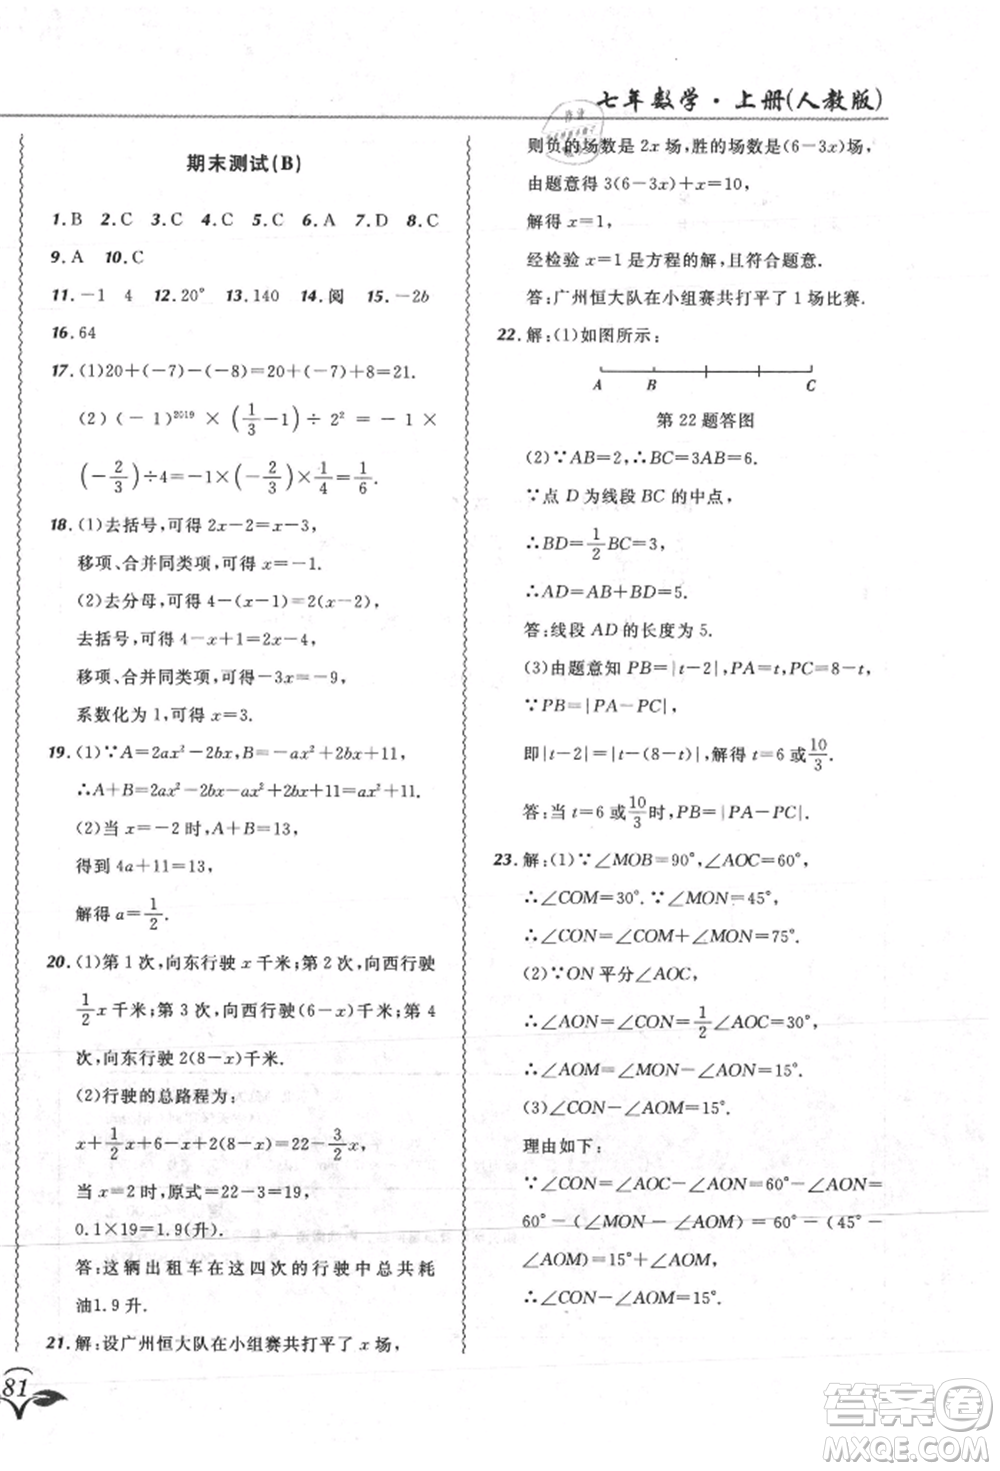 七年数学·上册(人教版)
期末测试(B)
1.B 2.C 3.C 4.C 5.C 6.A 7.D 8.C
9.A 10.C
11.-1 4 12.20° 13.140 14.阅 15.-2b
16.64
17.(1)20+(-7)-(-8)=20+(-7)+8=21.
(2)(-1)²⁰¹⁹×(1/3-1)÷2²=
(-2/3)÷4=(-1)×(-2/3)×1/4=1/6.
18.(1)去括号,可得2x-2=x-3,
移项、合并同类项,可得x=-1.
(2)去分母,可得4-(x-1)=2(x-2)
去括号,可得4-x+1=2x-4,
移项,合并同类项,可得-3x=-9,
系数化为1,可得x=3.
19.(1)∵A=2ax²-2bx,B=-ax²+2bx+11,
∴A+B=2ax²-2bx-ax²+2bx+11=ax²+11.
(2)当x=-2时,A+B=13,
得到4a+11=13,
解得a=1/2.
20.(1)第1次,向东行驶x千米;第2次,向西行驶
1/2x千米;第3次,向西行驶(6-x)千米;第4
次,向东行驶2(8-x)千米.
(2)行驶的总路程为:
x+1/2x+6-x+2(8-x)=22-3/2x,
当x=2时,原式=22-3=19,
0.1×19=1.9(升).
答:这辆出租车在这四次的行驶中总共耗
油1.9升.
21.解:设广州恒大队在小组赛共打平了x场,
81
则负的场数是2x场,胜的场数是(6-3x)场,
由题意得3(6-3x)+x=10,
解得x=1,
经检验x=1是方程的解,且符合题意.
答:广州恒大队在小组赛共打平了1场比赛.
22.解:(1)如图所示:
A B C
第22题答图
(2)∵AB=2,∴BC=3AB=6.
∵点D为线段BC的中点,
∴BD=1/2BC=3,
∴AD=AB+BD=5.
答:线段AD的长度为5.
(3)由题意知PB=|t-2|,PA=t,PC=8-t,
∵PB=|PA-PC|,
即|t-2|=|t-(8-t)|,解得t=6或10/3.
答:当t=6或10/3时,PB=|PA-PC|.
23.解:(1)∵∠MOB=90°,∠AOC=60°,
∴∠COM=30°.∵∠MON=45°,
∴∠CON=∠COM+∠MON=75°.
(2)∵ON平分∠AOC,
∴∠AON=∠CON=1/2∠AOC=30°,
∴∠AOM=∠MON-∠AON=15°.
(3)∠CON-∠AOM=15°.
理由如下:
∵∠CON=∠AOC-∠AON=60°-∠AON=
60°-(∠MON-∠AOM)=60°-(45°-
∠AOM)=15°+∠AOM,
∴∠CON-∠AOM=15°.
答案圈
MXQE.COM